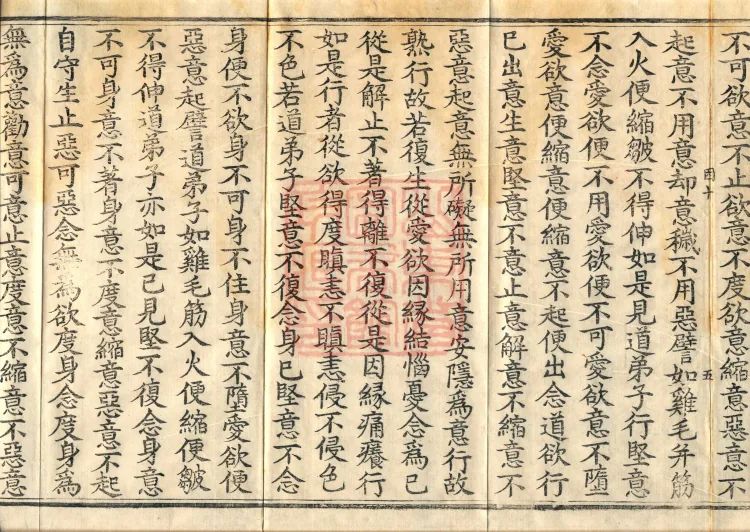 不可欲意不止欲意不度欲意縮意惡意不
起意不用意却意穢不用惡譬如雞毛并筋
入火便縮皺不得伸如是見道弟子行堅意
不念愛欲便不用愛欲便不可愛欲意不墮
愛欲意便縮意便縮意不起便出念道欲行
已出意生意堅意不意止意解意不縮意不
惡意起意無所礙無所用意安隱為意行故
熟行故若復生從愛欲因緣結惱憂念為已
從是解止不著得離不復從是因緣痛癢行
如是行者從欲得度瞋恚不瞋恚侵不侵色
不色若道弟子堅意不復念身已堅意不念
身便不欲身不可身不住身意不墮愛欲便
惡意起譬道弟子如雞毛筋入火便縮便皺
不得伸道弟子亦如是已見堅不復念身意
不可身意不著身意不度意縮意惡意不起
自守生止惡可惡念無為欲度身念度身為
無為意勸意可意止意度意不縮意不惡意
因十
五